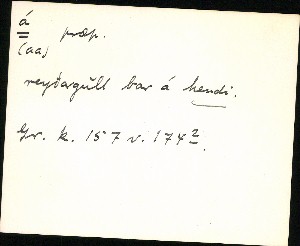 á præp.
(aa)
reyðargúll bar á hendi.
Gr. k. 157 v. 174²